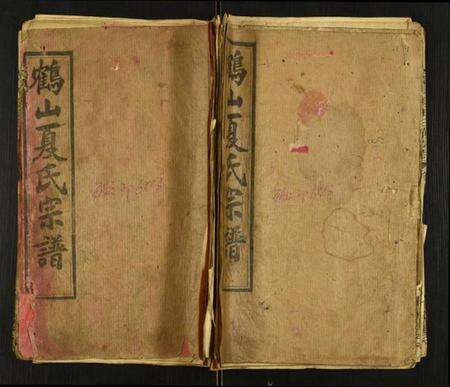 鶴山夏氏宗譜
鶴山夏氏宗譜